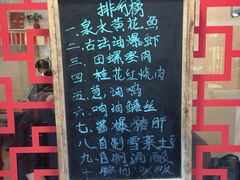 排行榜
一.泉水黄花鱼
二.古法油爆虾
三.田螺塞肉
四.桂花红烧肉
五.葱油鸡
六.响油鳝丝
七.酱爆猪肝
八.自制雪菜土
九.自制
十.